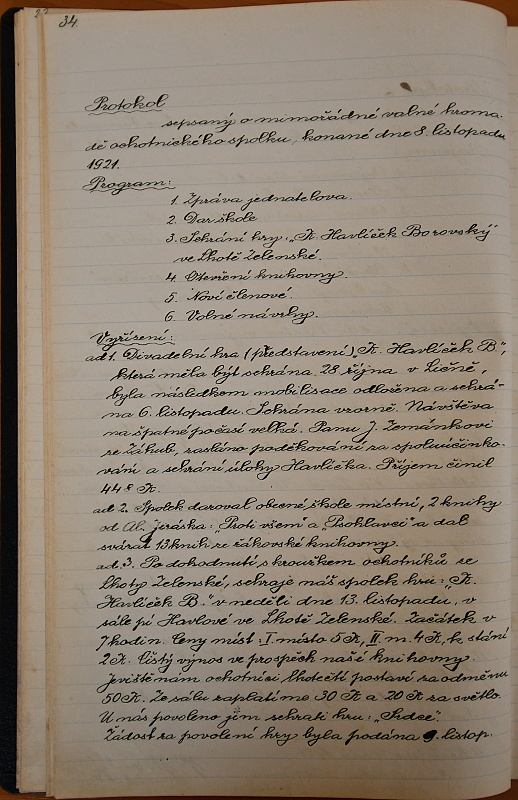 34.
Protokol
sepsaný o mimořádné valné hroma-
dě ochotnického spolku, konané dne 8. listopadu
1921.
Program:
1. Zpráva jednatelova.
2. Dar škole
3. Sehrání hry: „K. Havlíček Borovský"
ve Lhotě Zelenské.
4. Otevření knihovny.
5. Noví členové.
6. Volné návrhy.
Vyřízení:
ad 1. Divadelní hra (představení) „K. Havlíček B.",
která měla být sehrána 28. října v Líčně,
byla následkem mobilisace odložena a sehrá-
na 6. listopadu. Sehrána vzorně. Návštěva
na špatné počasí velká. Panu J. Zemánkovi
ze Záhub, zasláno poděkování za spoluúčinko-
vání a sehrání úlohy Havlíčka. Příjem činil
448 K.
ad 2. Spolek daroval obecné škole místní, 2 knihy
od Al. Jeráska: „Proti všem" a Psohlavci" a dal
svázat 13 knih ze žákovské knihovny.
ad. 3. Po dohodnutí s kroužkem ochotníků ze
Lhoty Zelenské, sehraje náš spolek hru: „K.
Havlíček B." v neděli dne 13. listopadu, v
sále pí Havlové ve Lhotě Zelenské. Začátek v
7 hodin. Ceny míst: I. místo 5 K, II. m. 4 K, k stání
2 K. Čistý výnos ve prospěch naší knihovny.
Jeviště nám ochotníci Lhotečtí postaví za odměnu
50 K. Ze sálu zaplatíme 30 K a 20 K za světlo.
U nás povoleno jim sehrati hru: „Srdce".
Žádost za povolení hry byla podána 9. listop.